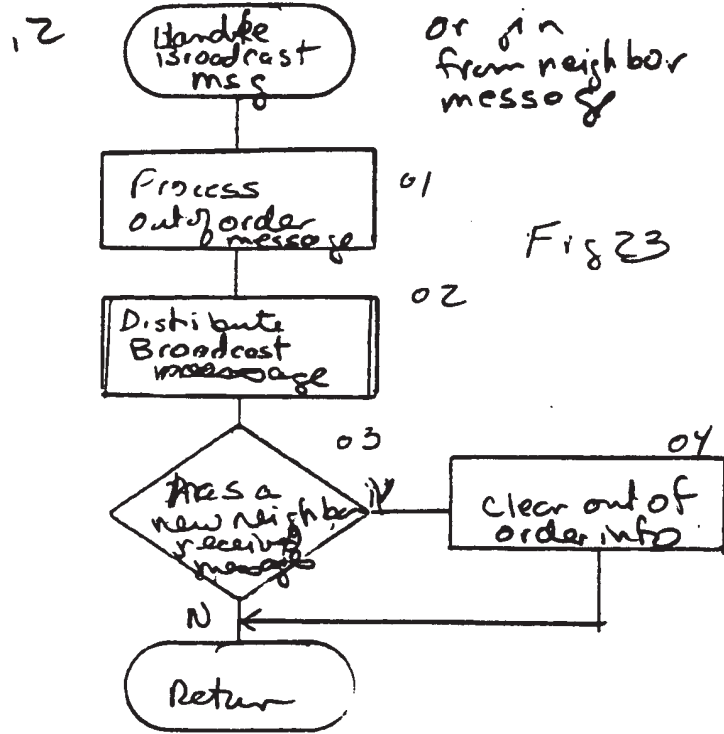 ,2
Handle
Broadcast
msg
origin
from neighbor
message
Process
out of order
message
01
Fig 23
02
Distribute
Broadcast
message
03
Has a
new neighbor
received
message
04
Clear out of
order info
N
Return